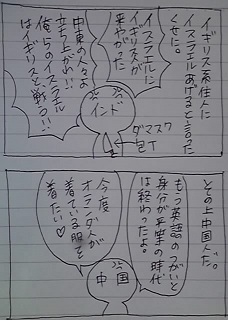 イギリス系住人に
イスラエルあげると言った
くせに。
イスラエルに
イギリスが
来やがった
中東の人々よ
立ち上がれ!!
俺らのイスラエル
はイギリスと戦う!!
インド
ダマスク
包丁
その上中国人だ。
もう英語のつがいと
身分が平等の時代
は終わったよ。
今度
オランダ人が
着ている服を
着たい♡
中国